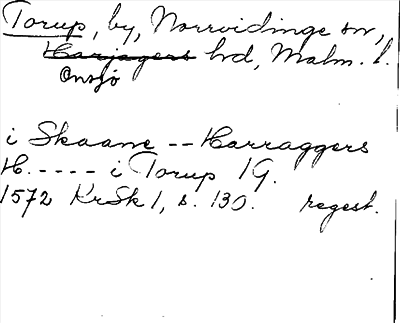 Torup, by, Norrvidinge sn,
Harjagers hd, Malm. l.
Onsjö
i Skaane -- Harraggers
H. ---- i Torup 1 G.
1572 KrSk 1, s. 130. regest.